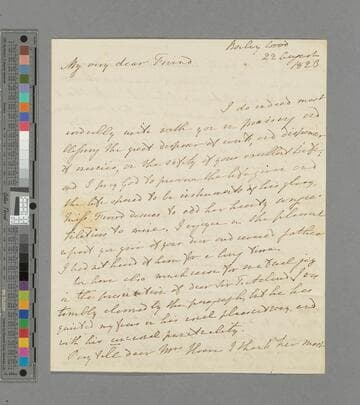 Barley Wood
22 August
1823
My very dear Friend
I do indeed most
cordially unite with you in praising and
blessing the great disposer of and
of mercies, on the safety of your excellent
and I pray God to preserve the life given and
the life spared to be instruments of his glory.
Miss Frowd desires to add her hearty congra-
tulations to mine. I rejoice in the
report you give of your dear and revered father
I had not heard of him for a long time.
We have also much cause for mutual joy
in the of dear Sir T. Acland. I was
terribly alarmed by the paragraph, but he has
quieted my fears in his usual pleasant way, and
with his usual
Pray tell dear Mrs I thank her most